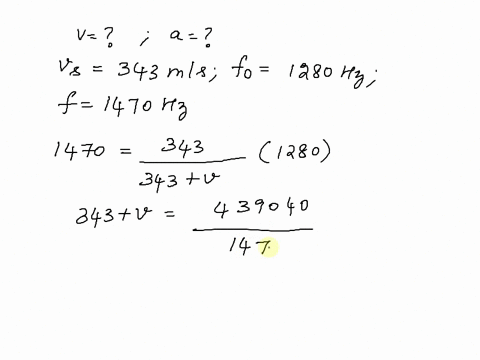 v=? ; a=?
vs = 343 m/s; f0 = 1280 Hz;
f = 1470 Hz
1470 = 343 / 343 + v (1280)
343 + v = 439040 / 147